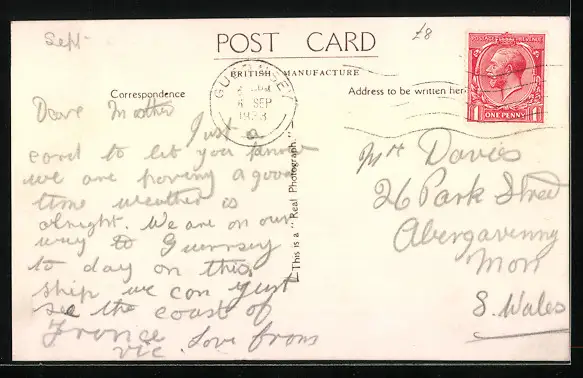 Sept
£8
POST CARD
BRITISH MANUFACTURE
Correspondence
Address to be written here
GUERNSEY
6 SEP
1933
POSTAGE REVENUE
1 ONE PENNY 1
This is a "Real Photograph."
Dear Mother
Just a
card to let you know
we are having a good
time weather is
alright. We are on our
way to Guernsey
to day on this
ship we can just
see the coast of
France
vic. Love from
Mrs Davies
26 Park Street
Abergavenny
Mon
S. Wales